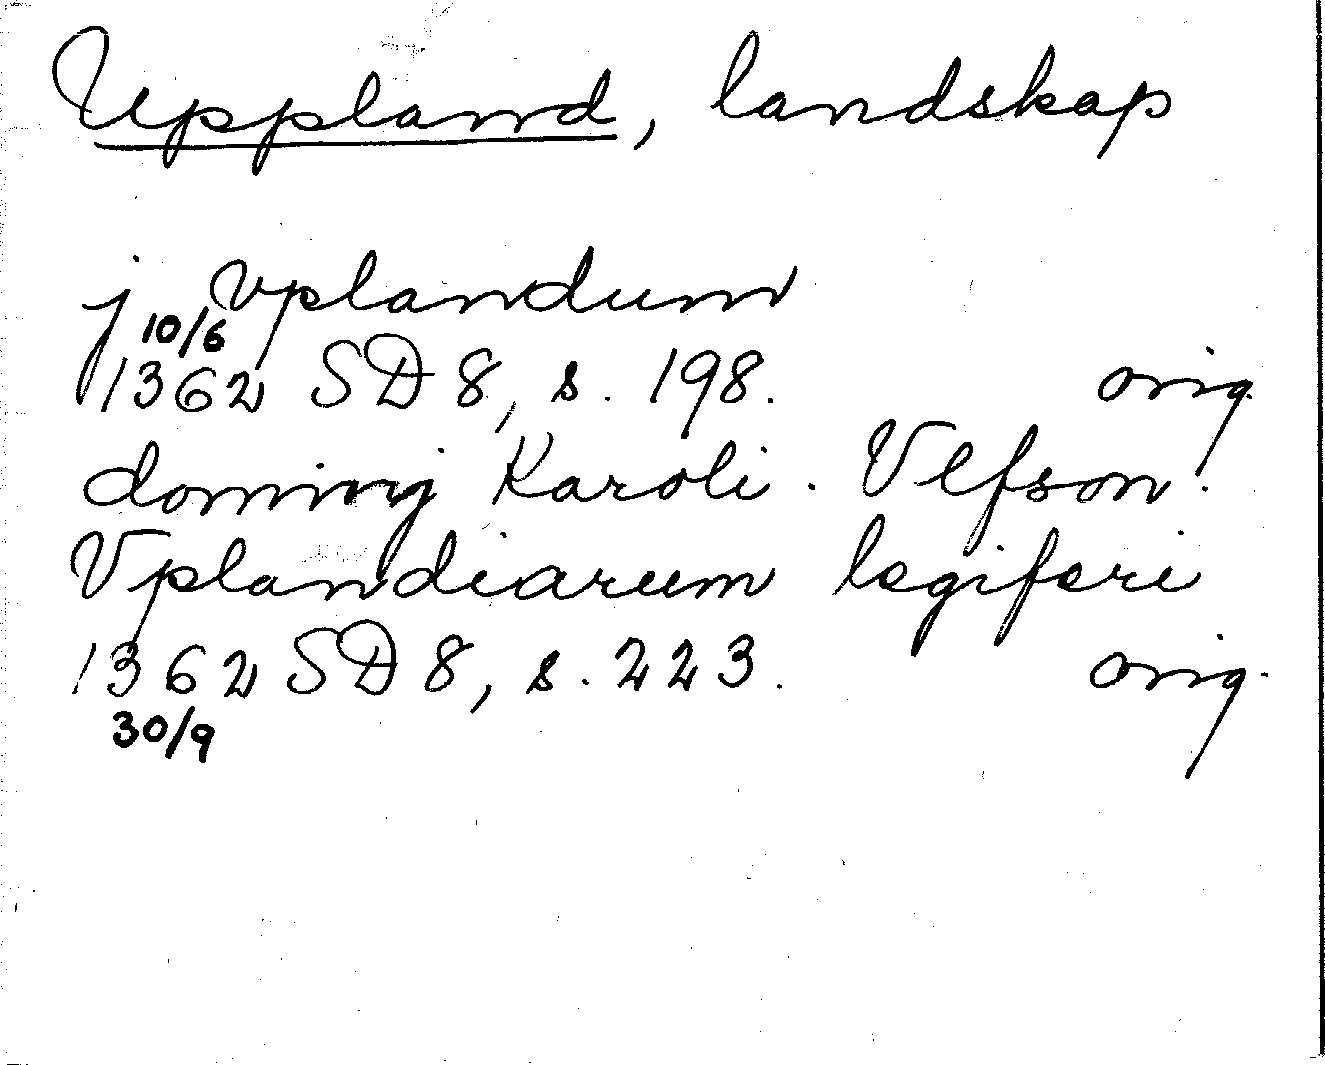 Uppland, landskap
j vplandum
10/6
1362 SD 8, s. 198. orig.
dominj Karoli . Vlfson .
Vplandiarum legiferi
1362 SD 8, s. 223. orig.
30/9